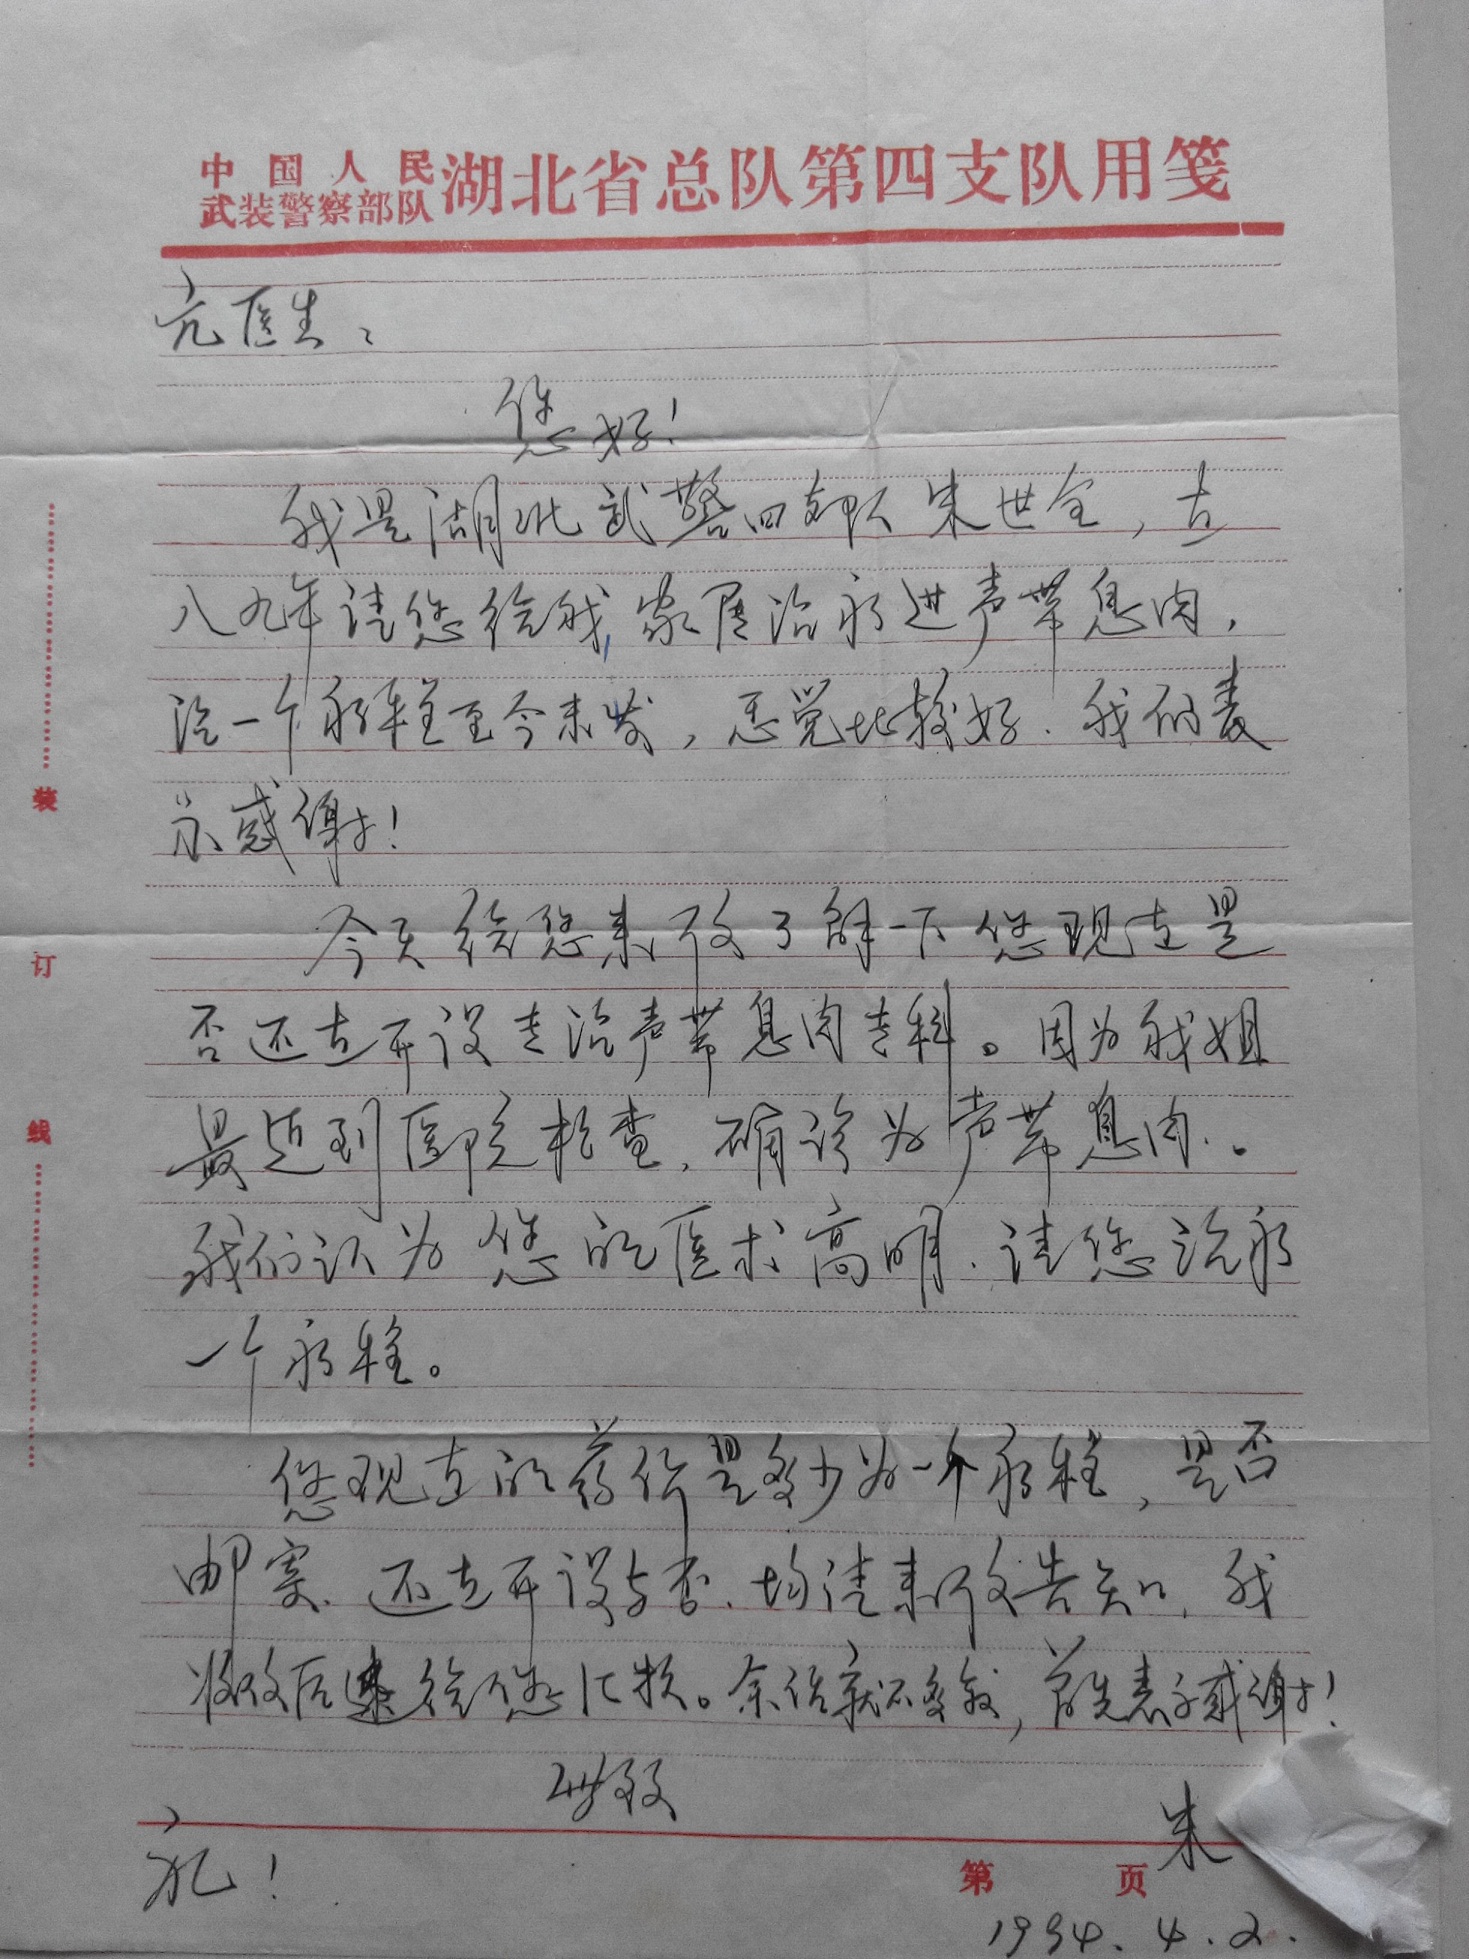 中国人民
武装警察部队 湖北省总队第四支队用笺
亢医生:
您好!
我是湖北武警四支队朱世全,在
八九年请您给我家属治疗过声带息肉,
治一个疗程至今未发,感觉比较好.我们表
示感谢!
今天给您来信了解一下您现在是
否还在开设专治声带息肉专科。因为我姐
最近到医院检查,确诊为声带息肉.。
我们认为您的医术高明.请您治疗
一个疗程。
您现在的药价是多少为一个疗程,是否
邮寄.还在开设与否.均请来信告知,我
收信后速给您汇款。余话就不多叙,首先表示感谢!
此致
朱
礼!
第 页
1994.4.2.
装
订
线